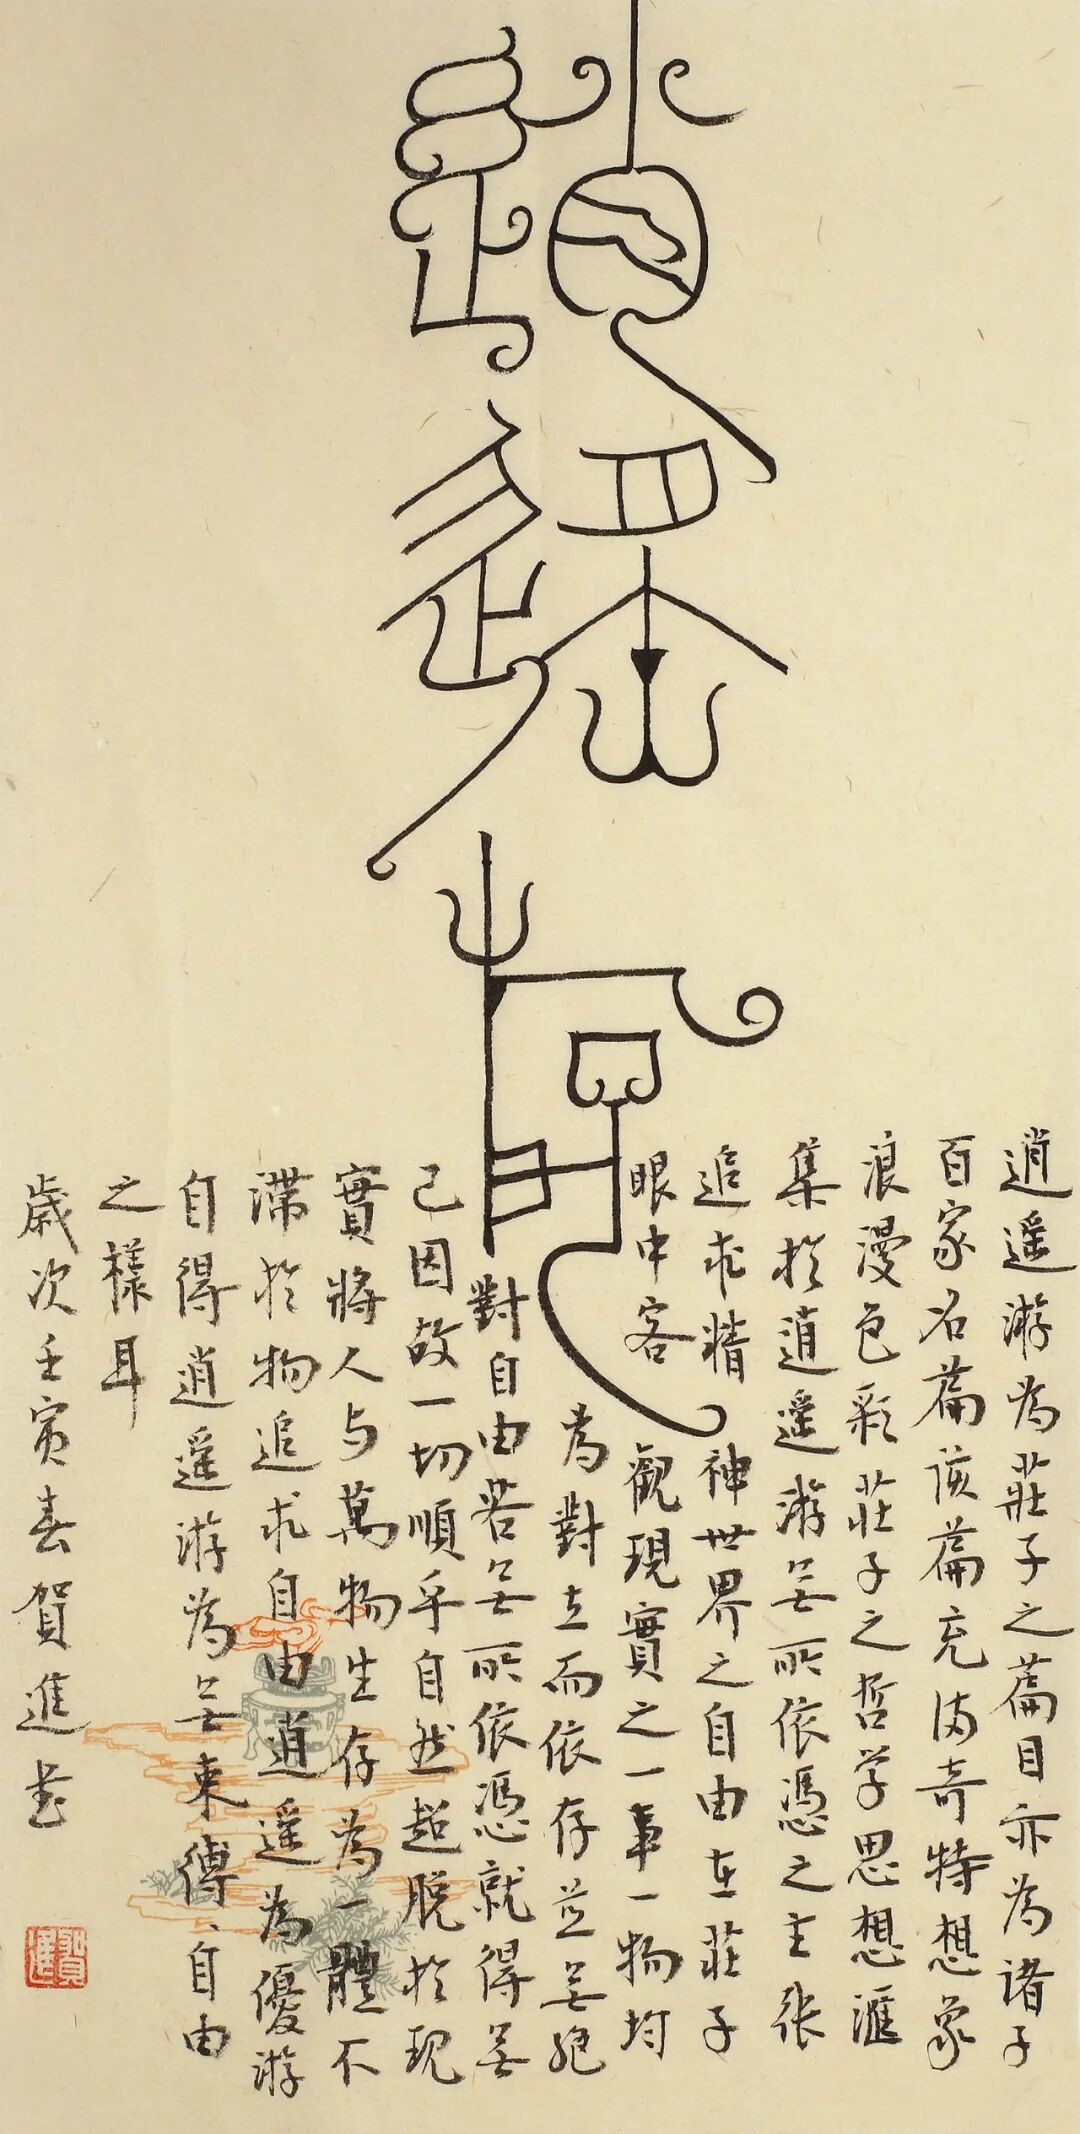 逍
遥
游
逍遥游为莊子之篇目亦為诸子
百家名篇该篇充满奇特想象
浪漫色彩莊子之哲学思想滙
集於逍遥游無所依憑之主张
追求精神世界之自由在莊子
眼中客觀現實之一事一物均
為對立而依存並無絕
對自由若無所依憑就得無
己因故一切順乎自然超脱於現
實將人与萬物生存為一體不
滯於物追求自由逍遥為優游
自得逍遥游為無束縛、自由
之樣耳
歲次壬寅春賀進書
賀進